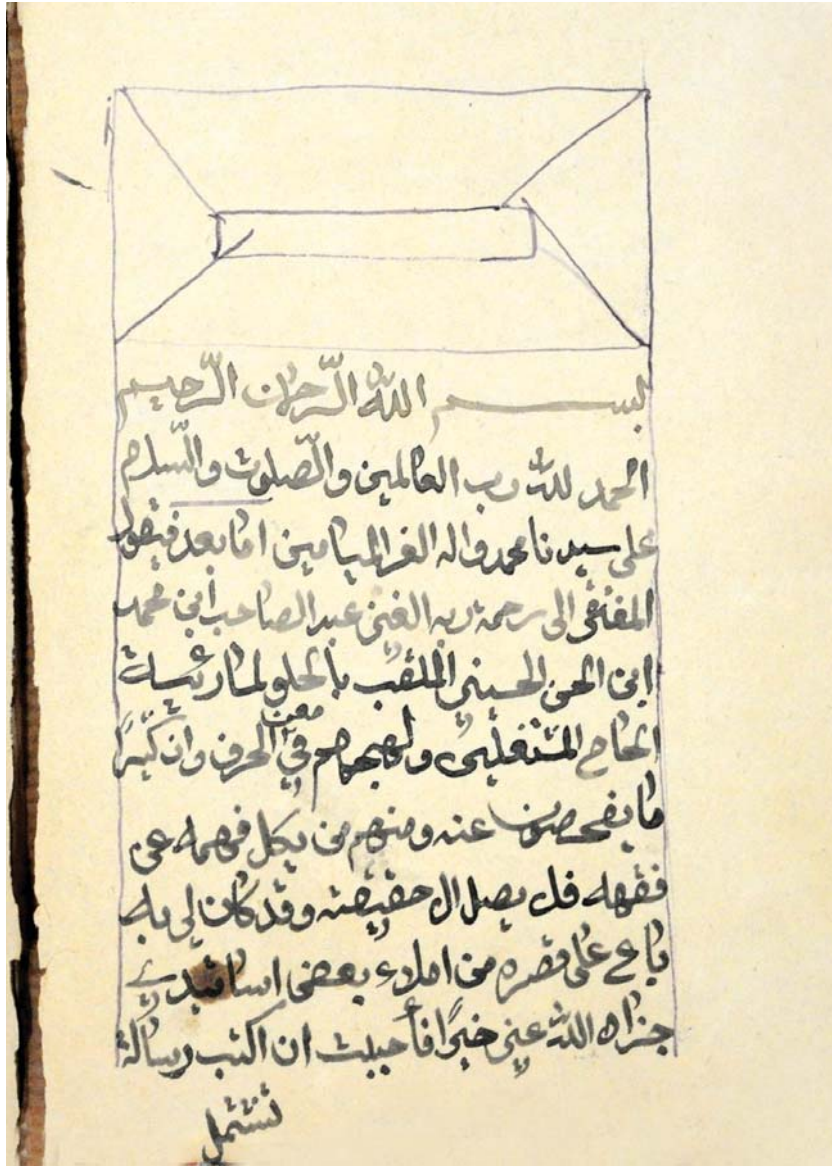 بسم الله الرحمن الرحيم
الحمد لله رب العالمين والصلوٰت والسلام
على سيدنا محمد واله الغر الميامين اما بعد فيقول
المفتقر الى رحمة ربه الغني عبد الصاحب ابن محمد
ابن الحسن الحسيني الملقب بالحلو لما رئيت
الحاح المشتغلين ولهجهم في معنى الحرف وان كثيرًا
ما يفحصون عنه ومنهم من يكل فهمه عن
فقهه فلم يصل الى حقيقته وقد كان لي به
باع على قصره من املاء بعض اساتيدي
جزاه الله عني خيرًا فأحببت ان اكتب رسالة
تشتمل